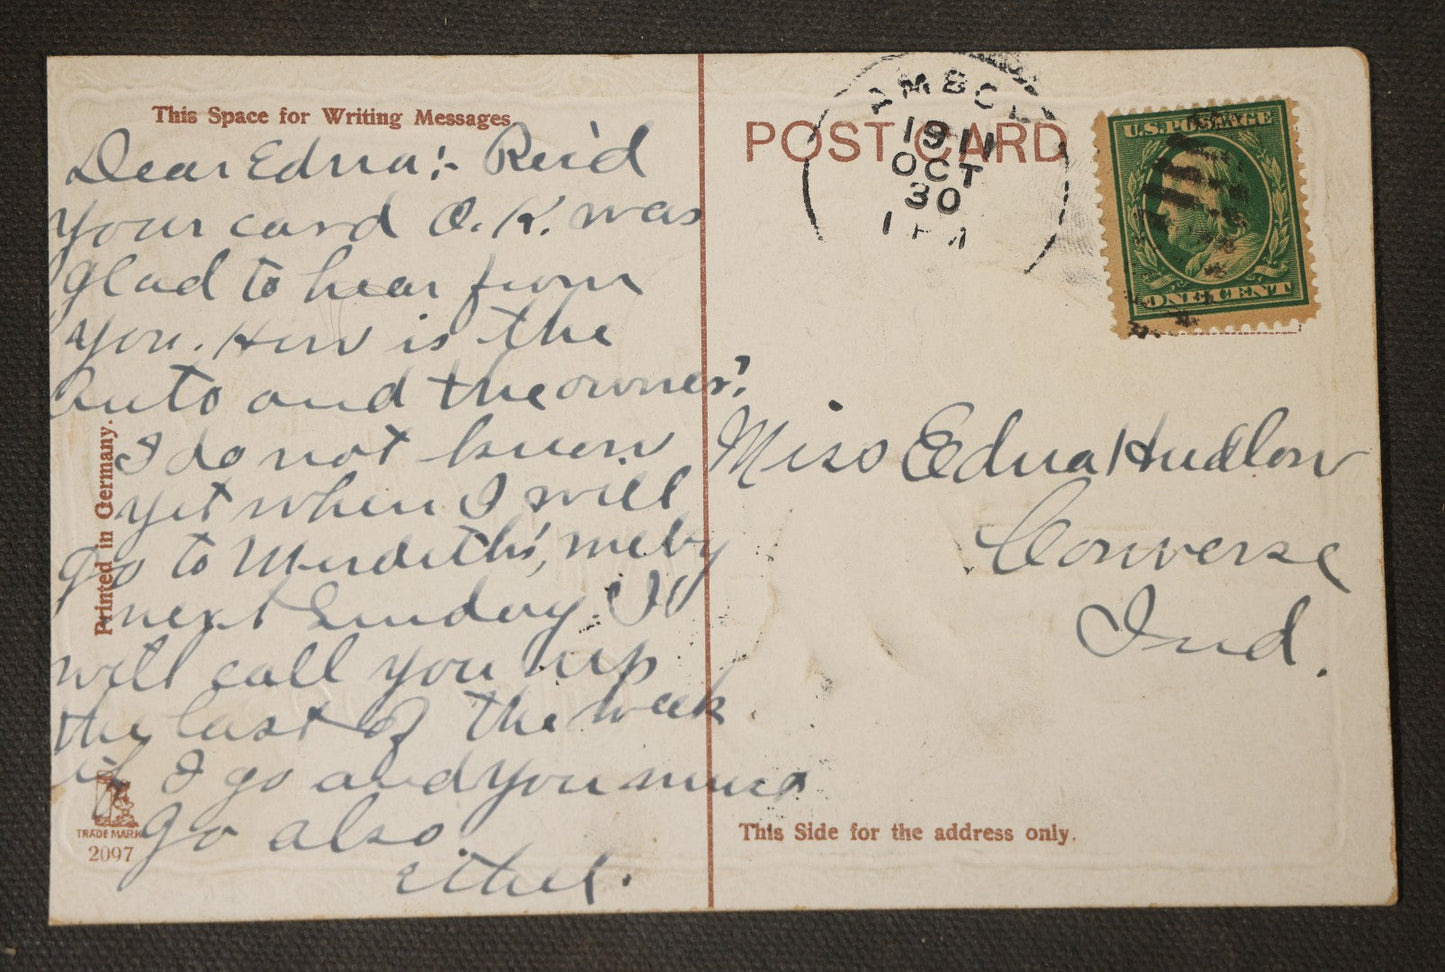 This Space for Writing Messages
Dear Edna:- Rec'd
your card O.K. was
glad to hear from
you. How is the
Auto and the owner?
I do not know
yet when I will
go to Merdeith's, meby
next Sunday. I
will call you up
the last of the week
if I go and you must
go also.
Ethel.
Printed in Germany.
TRADE MARK
2097
POST CARD
AMBOY
1911
OCT
30
1 PM
U.S. POSTAGE
ONE CENT
Miss Edna Hudlow
Converse
Ind.
This Side for the address only.